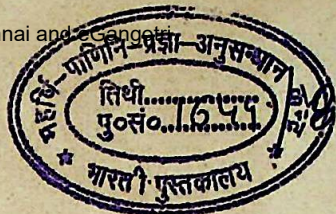 nnai and eGangotri
महर्षि-पाणिनि-प्रज्ञा-अनुसन्धान
तिथी..............
पु०सं०.1655......
* भारती पुस्तकालय *